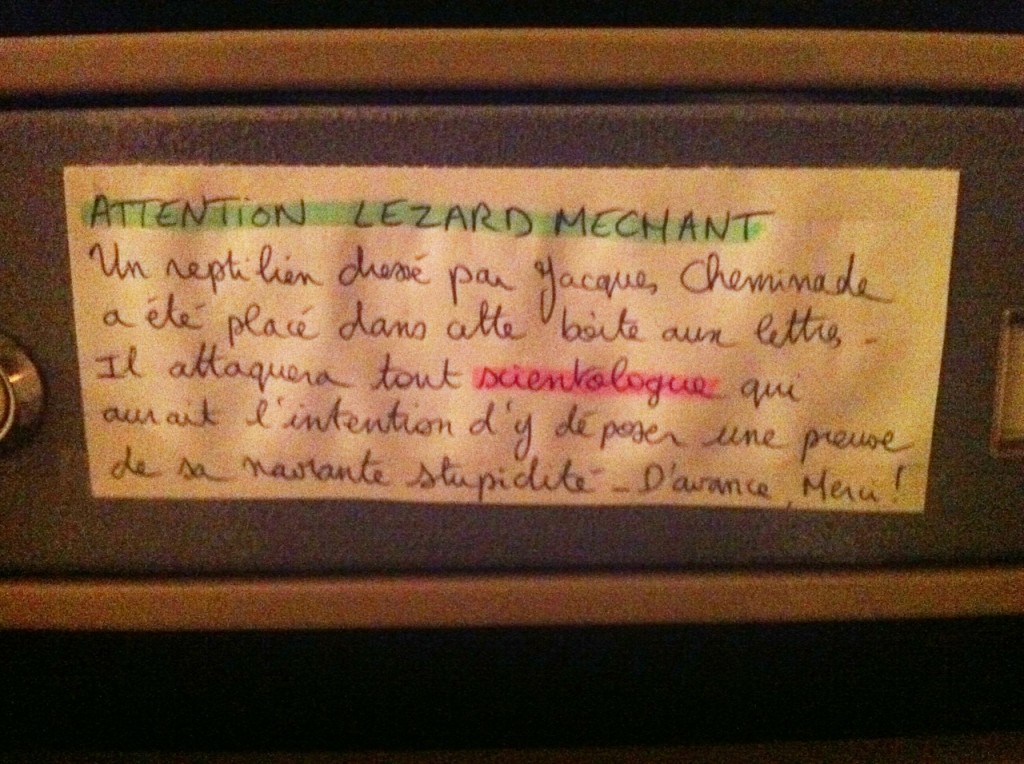 ATTENTION LEZARD MECHANT
Un reptilien dressé par Jacques Cheminade
a été placé dans cette boîte aux lettres -
Il attaquera tout scientologue qui
aurait l'intention d'y déposer une preuve
de sa navrante stupidité - D'avance, Merci !